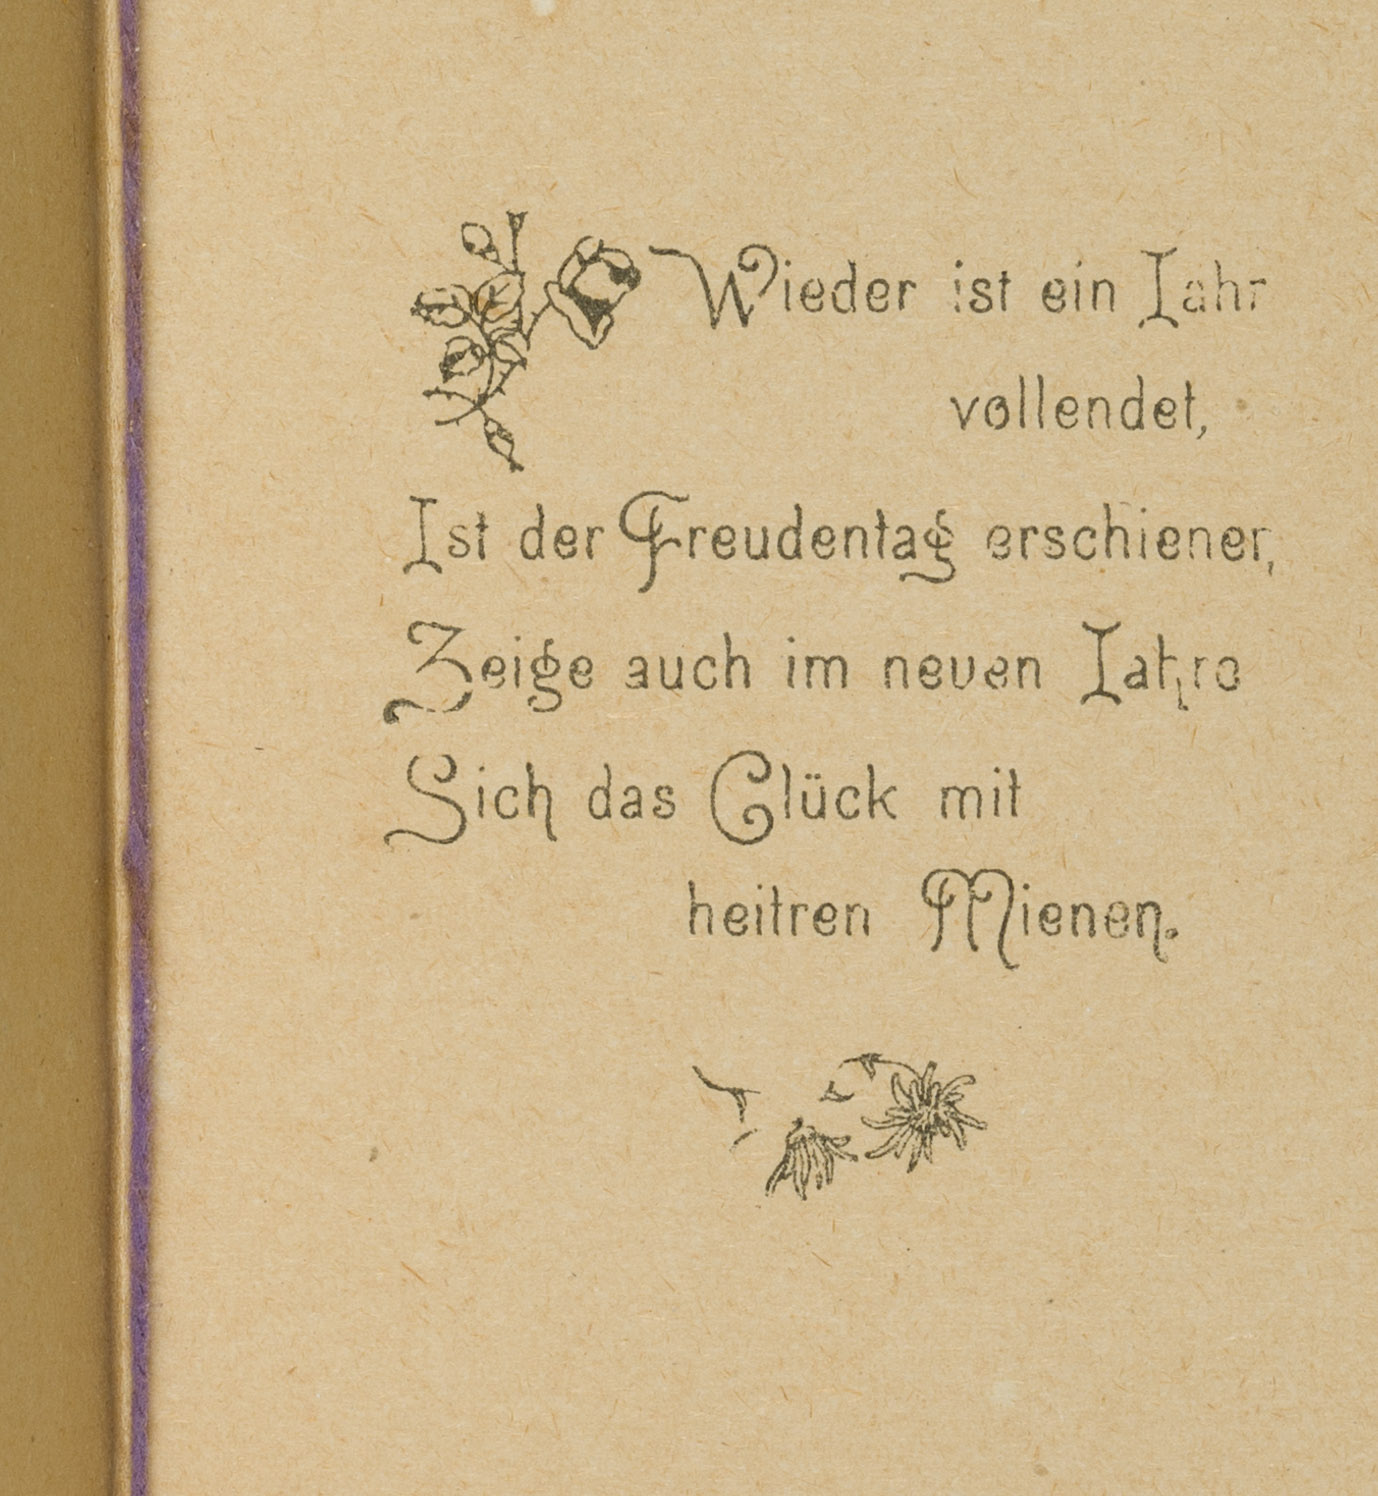 Wieder ist ein Jahr
vollendet,
Ist der Freudentag erschienen,
Zeige auch im neuen Jahre
Sich das Glück mit
heitren Mienen.